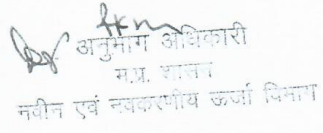 अनुभाग अधिकारी
म.प्र. शासन
नवीन एवं नवकरणीय ऊर्जा विभाग